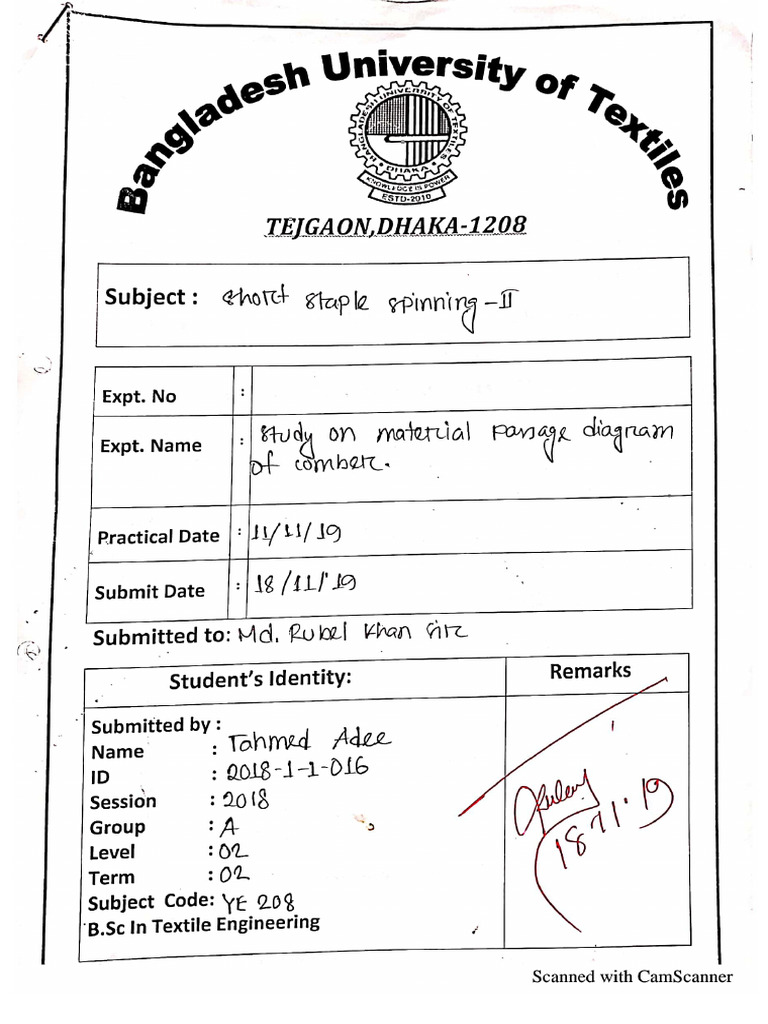 Bangladesh University of Textiles
BANGLADESH UNIVERSITY OF TEXTILES
DHAKA
KNOWLEDGE IS POWER
ESTD-2010
TEJGAON,DHAKA-1208
Subject : Short staple spinning -II
Expt. No :
Expt. Name : Study on material passage diagram
of comber.
Practical Date : 11/11/19
Submit Date : 18/11/19
Submitted to: Md. Rubel Khan Sir
Student's Identity: Remarks
Submitted by :
Name : Tahmed Adee
ID : 2018-1-1-016
Session : 2018
Group : A
Level : 02
Term : 02
Subject Code: YE 208
B.Sc In Textile Engineering
18.11.19
Scanned with CamScanner